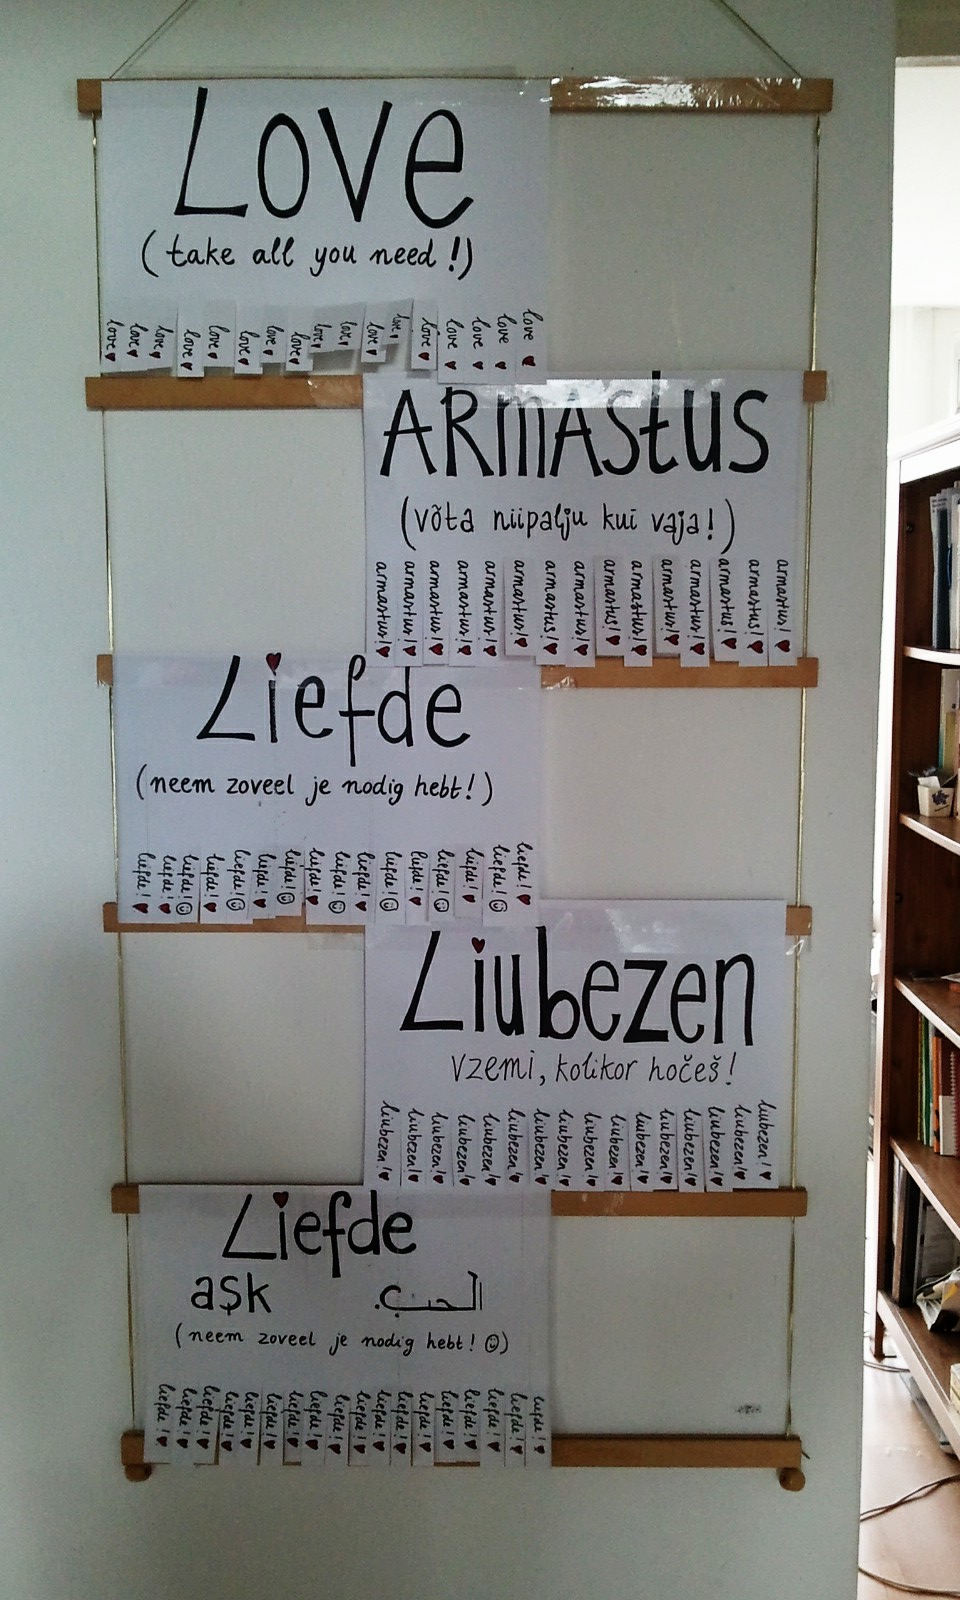 Love
(take all you need!)
love love love love love love love love love love love love love love love love love
ARMAStUS
(võta niipalju kui vaja!)
armastus! armastus! armastus! armastus! armastus! armastus! armastus! armastus! armastus! armastus! armastus! armastus! armastus! armastus! armastus!
Liefde
(neem zoveel je nodig hebt!)
liefde! liefde! liefde! liefde! liefde! liefde! liefde! liefde! liefde! liefde! liefde! liefde! liefde! liefde! liefde! liefde!
Liubezen
vzemi, kolikor hočeš!
liubezen! liubezen! liubezen! liubezen! liubezen! liubezen! liubezen! liubezen! liubezen! liubezen! liubezen! liubezen! liubezen! liubezen! liubezen!
Liefde
aşk الحب.
(neem zoveel je nodig hebt! ☺)
liefde! liefde! liefde! liefde! liefde! liefde! liefde! liefde! liefde! liefde! liefde! liefde! liefde! liefde! liefde! liefde! liefde! liefde!